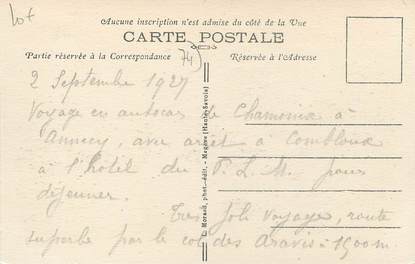 lot
Aucune inscription n'est admise du côté de la Vue
CARTE POSTALE
Partie réservée à la Correspondance
74)
Réservée à l'Adresse
2 Septembre 1927
Voyage en autocar de Chamonix à
Annecy, avec arrêt à Combloux
à l'hôtel du P. L. M. pour
déjeuner.
Très joli voyage, route
superbe par le col des Aravis - 1500 m.
Morand, phot.-édit. - Megève (Haute-Savoie)